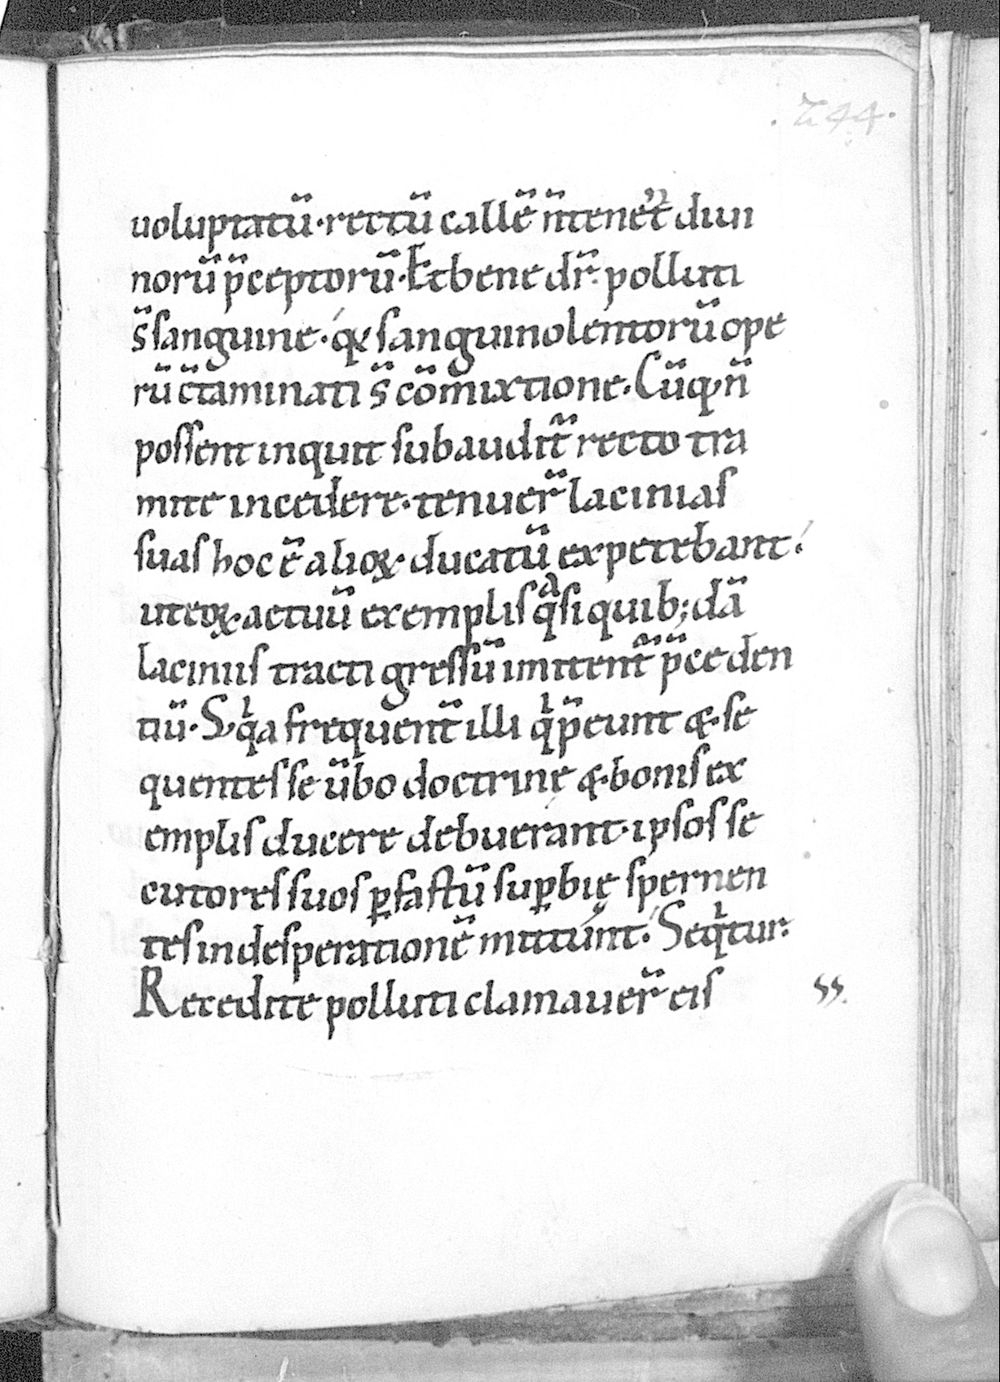 .244.
uoluptatū·rectū callē n̄tener̄t diui
norū p̄ceptorū·Et bene dr̄· polluti
s̄ sanguine· qꝫ sanguinolentorū ope
rū c̄taminati s̄ cōmixtione·Cūq; n̄
possent inquit subaudit̄ recto tra
mite incedere·tenuer̄ lacinias
suas hoc ē alioꝝ ducatū expetebant·
ut eoꝝ actuū exemplis qᵃsi quib; dā
laciniis tracti gressū imitent̄ p̄ceden
tiū·S; qⁱa frequent̄ illi qⁱ p̄eunt & se
quentes se ūbo doctrinę & bonis ex
emplis ducere debuerant·ipsos se
cutores suos ꝑ fastū suꝑbię spernen
tes in desperationē mittunt·Seqⁱtur·
Recedite polluti clamauer̄ eis ss.